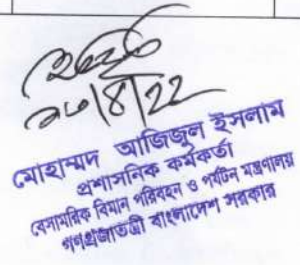 ২৮/৪/২২
মোহাম্মদ আজিজুল ইসলাম
প্রশাসনিক কর্মকর্তা
বেসামরিক বিমান পরিবহন ও পর্যটন মন্ত্রণালয়
গণপ্রজাতন্ত্রী বাংলাদেশ সরকার